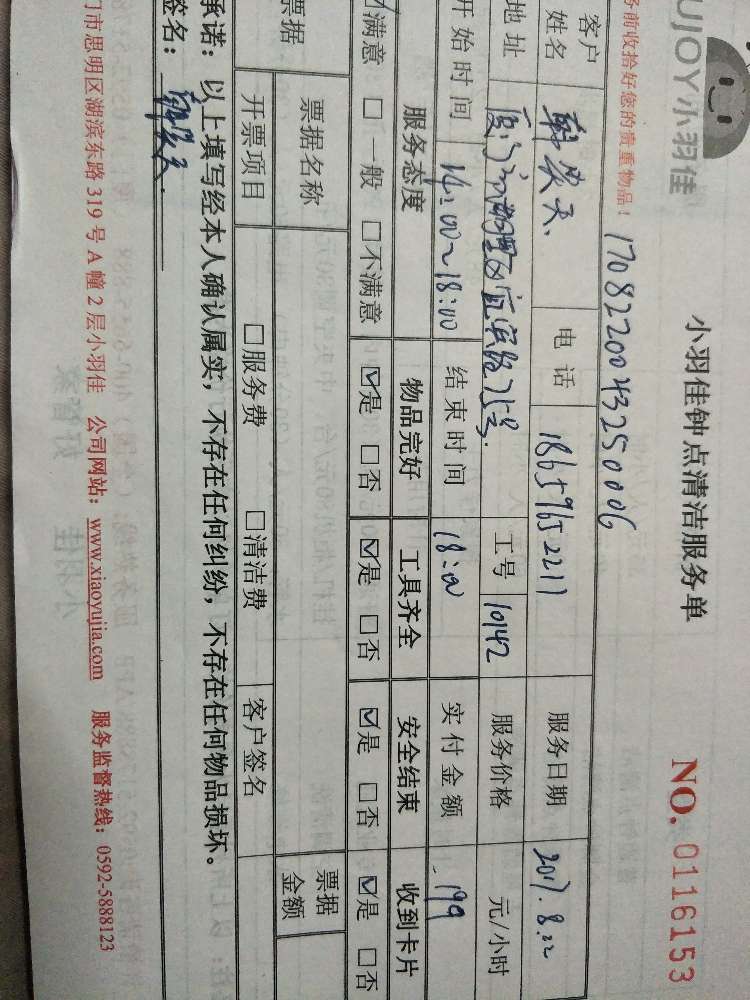 UJOY小羽佳
小羽佳钟点清洁服务单
NO. 0116153
务前收拾好您的贵重物品！
170822004325000G
客户姓名 韩昊天 电话 18659652211 服务日期 2017.8.22
地址 厦门市湖里区宜宾路75号 工号 10142 服务价格 元/小时
开始时间 14:00~18:00 结束时间 18:00 实付金额 199
服务态度 物品完好 工具齐全 安全结束 收到卡片
☑满意 □一般 □不满意 ☑是 □否 ☑是 □否 ☑是 □否 ☑是 □否
票据 票据名称 票据金额
开票项目 □服务费 □清洁费 客户签名
承诺：以上填写经本人确认属实，不存在任何纠纷，不存在任何物品损坏。
签名：
门市思明区湖滨东路319号A幢2层小羽佳 公司网站：www.xiaoyujia.com 服务监督热线：0592-5888123